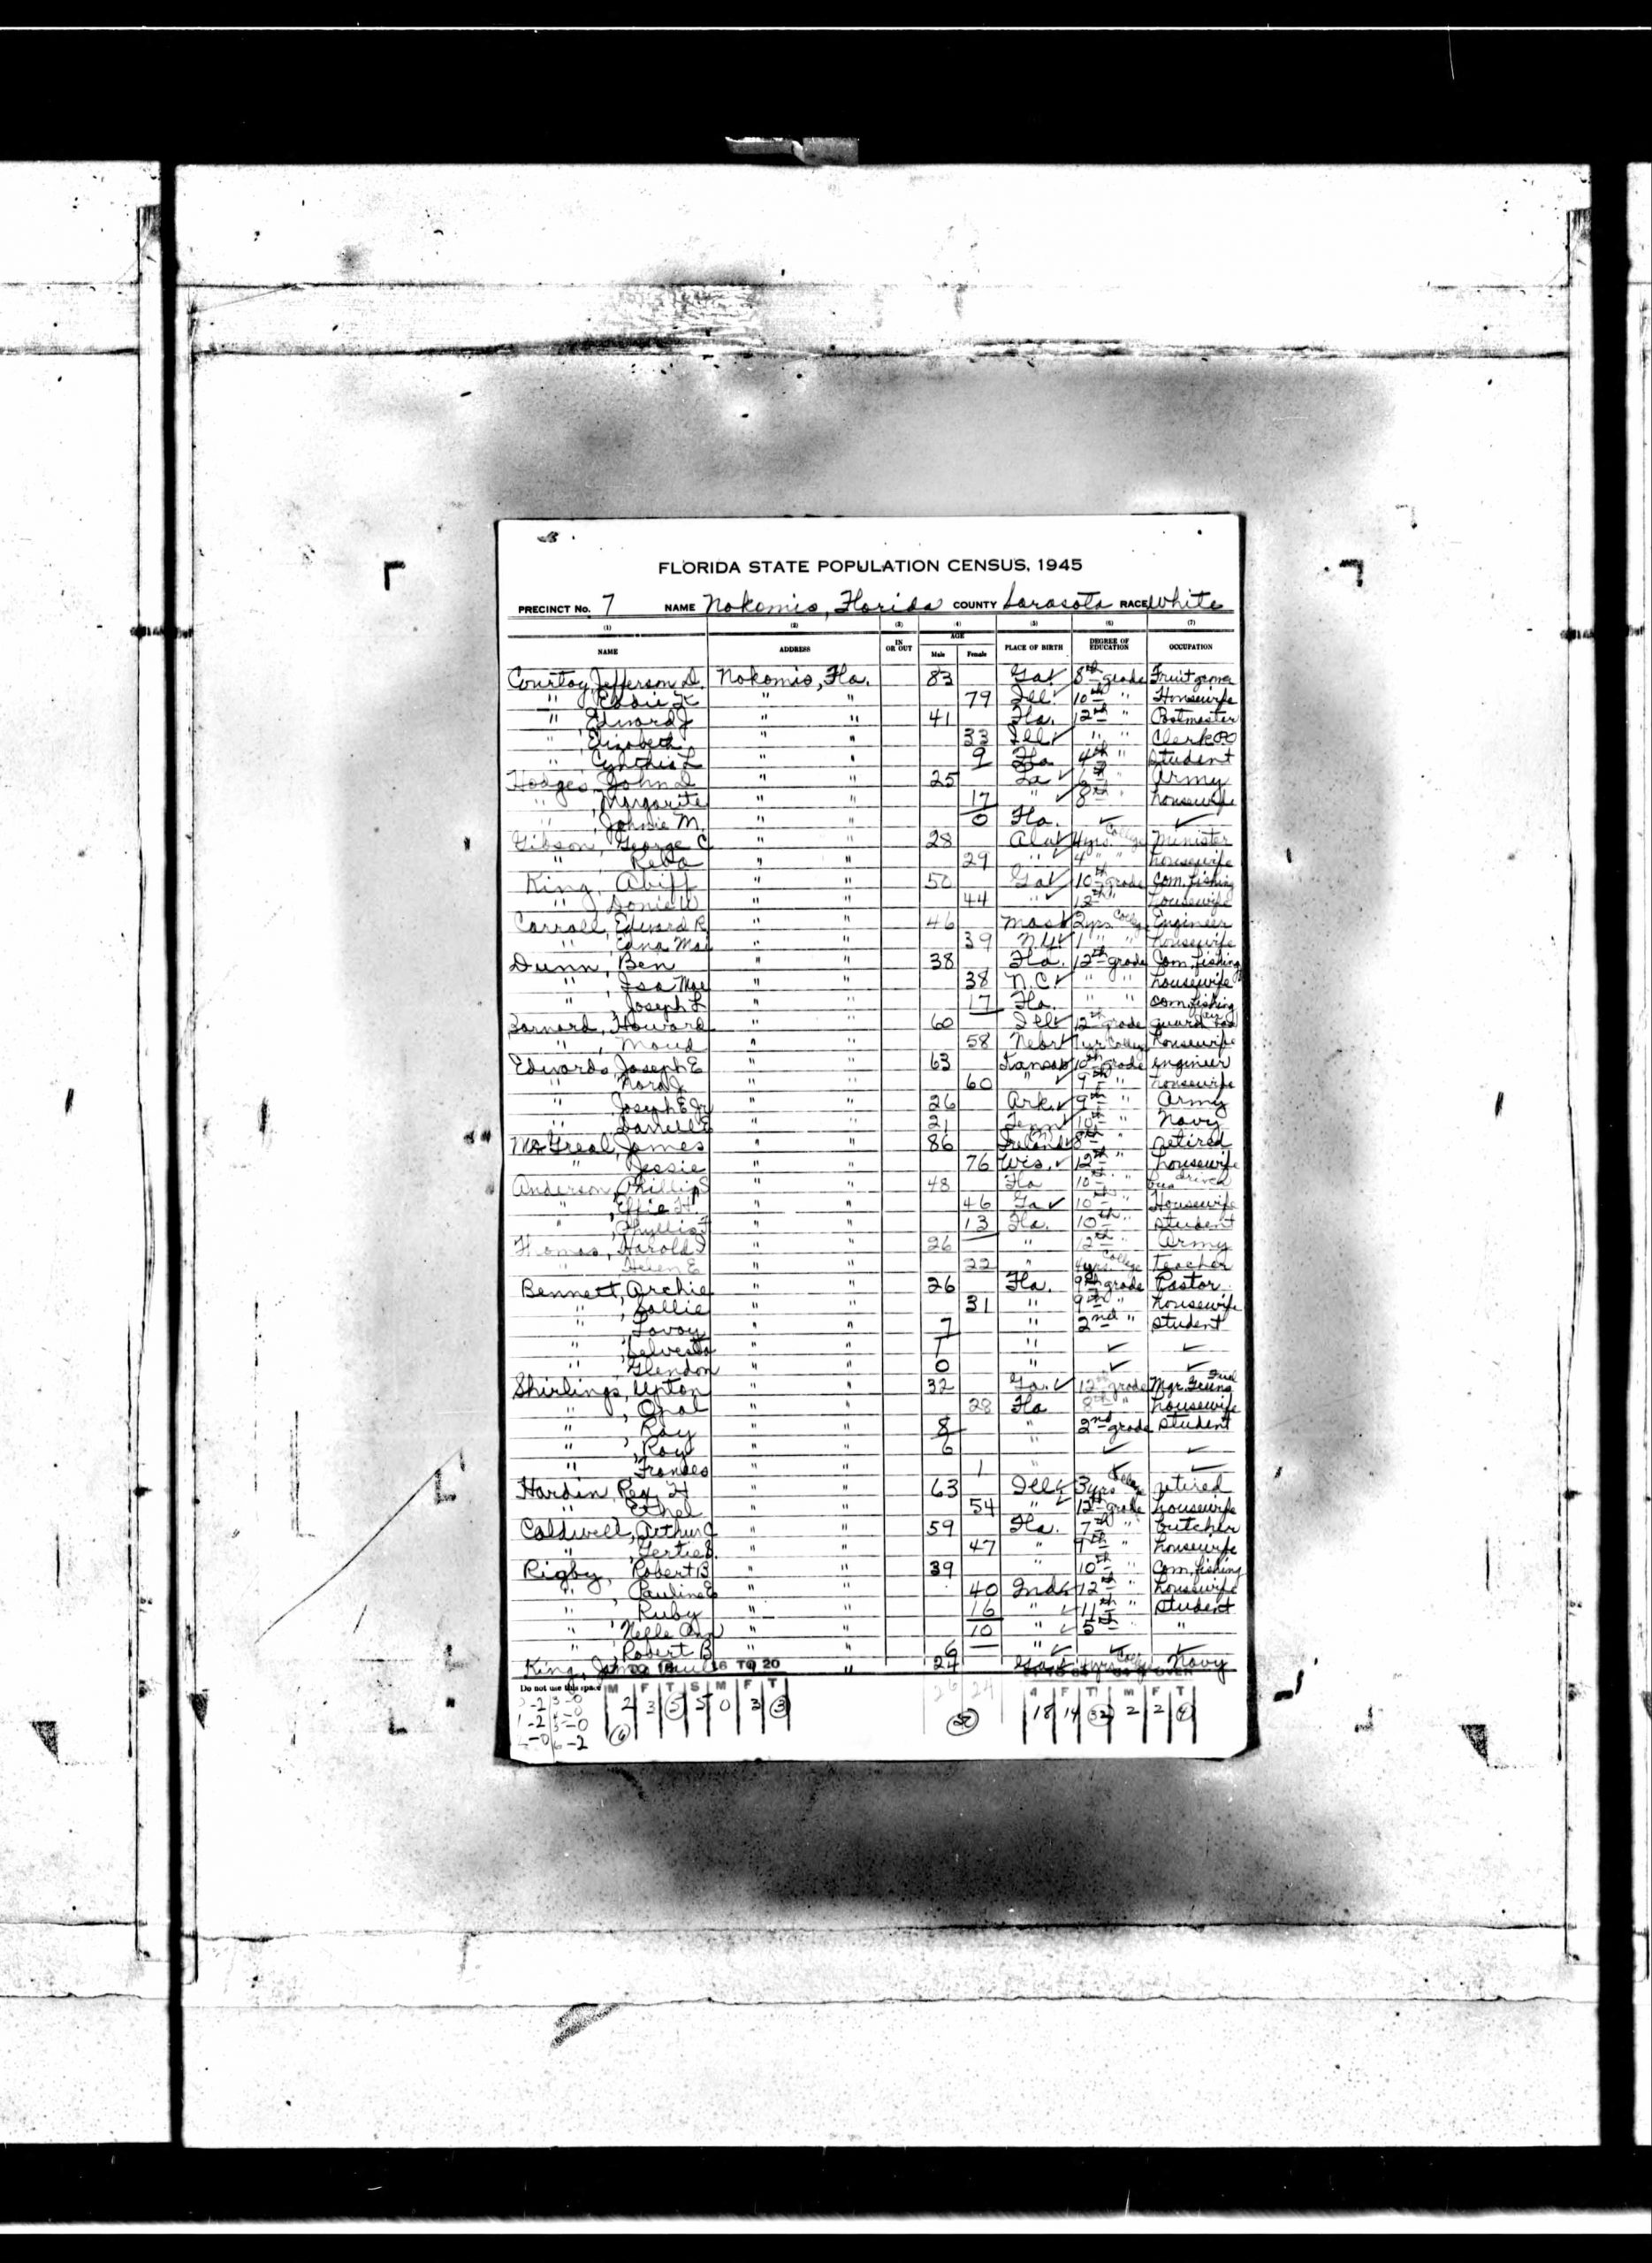 FLORIDA STATE POPULATION CENSUS, 1945
PRECINCT No. 7 NAME Nokomis, Florida COUNTY Sarasota RACE White
(1) (2) (3) (4) (5) (6) (7)
NAME ADDRESS IN OR OUT AGE Male Female PLACE OF BIRTH DEGREE OF EDUCATION OCCUPATION
Jefferson D. Nokomis, Fla. 83 Ga ✓ 8th grade Fruit grower
" Eddie " " 79 Ill. 10th " Housewife
" Edward J " " 41 Fla. 12th " Postmaster
" Elizabeth " " 33 Ill ✓ " " Clerk PO
" Cynthia L " " 9 Fla 4th " Student
Hodges, John " " 25 ✓ 6th " Army
" Margarite " " 17 " ✓ 8th " housewife
" Johnie M. " " 0 Fla. ✓ ✓
Gibson, George C " " 28 Ala ✓ 4 yrs. College Minister
" Reba " " 29 " ✓ 4 " " housewife
King, Abiff " " 50 Ga ✓ 10th grade Com. fishing
" " " 44 " ✓ 12th " housewife
Carroll, Edward R " " 46 Mass ✓ 2 yrs Colleg Engineer
" Edna Mae " " 39 N.Y. ✓ 1 " " housewife
Dunn, Ben " " 38 Fla. 12th grade Com. fishing
" , Isa Mae " " 38 N.C. ✓ " " housewife
" Joseph L " " 17 Fla. " " com. fishing
Barnard, Howard " " 60 Ill ✓ 12th grade guard
" , Maud " " 58 Nebr ✓ 1 yr College housewife
Edwards, Joseph E " " 63 Kansas 10th grade engineer
" Nora J " " 60 " ✓ 9th " housewife
" Joseph E Jr " " 26 Ark. ✓ 9th " Army
" " " 21 Tenn ✓ 10th " Navy
McGreal, James " " 86 Ireland ✓ 8th " retired
" Jessie " " 76 Wis. ✓ 12th " housewife
Anderson, Phillip " " 48 Fla 10th " bus driver
" , Effie H. " " 46 Ga ✓ 10th " Housewife
" , Phyllis " " 13 Fla. 10th " student
Harold " " 26 " 12th " Army
" Helen E " " 22 " 4 yrs College Teacher
Bennett, Archie " " 26 Fla. 9th grade Pastor
" , Sallie " " 31 " 9th " housewife
" , Lavoy " " 7 " 2nd " student
" , " " " ✓ ✓
" , Glendon " " 0 " ✓ ✓
Shirlings, Upton " " 32 Ga. ✓ 12th grade Mgr.
" , Opal " " 28 Fla 8th " housewife
" , Ray " " 8 " 2nd grade student
" , Roy " " 6 " ✓ ✓
" , Frances " " 1 " ✓ ✓
Hardin, Rex H " " 63 Ill ✓ 3 yrs College retired
" Ethel " " 54 " ✓ 12th grade housewife
Caldwell, Arthur J " " 59 Fla. 7th " butcher
" , Gertie " " 47 " 9th " housewife
Rigby, Robert B " " 39 " 10th " Com. fishing
" , Pauline E " " 40 Ind ✓ 12th " housewife
" , Ruby " " 16 " ✓ 11th " student
" , Nelle Ann " " 10 " ✓ 5th " "
" , Robert B " " 6 " ✓ ✓ ✓
King, James " Ga ✓ 4 yrs College Navy
16 TO 20
Do not use this space M F T S M F T 26 24 F T M F T
2 3 5 5 0 3 3 18 14 32 2 2 4